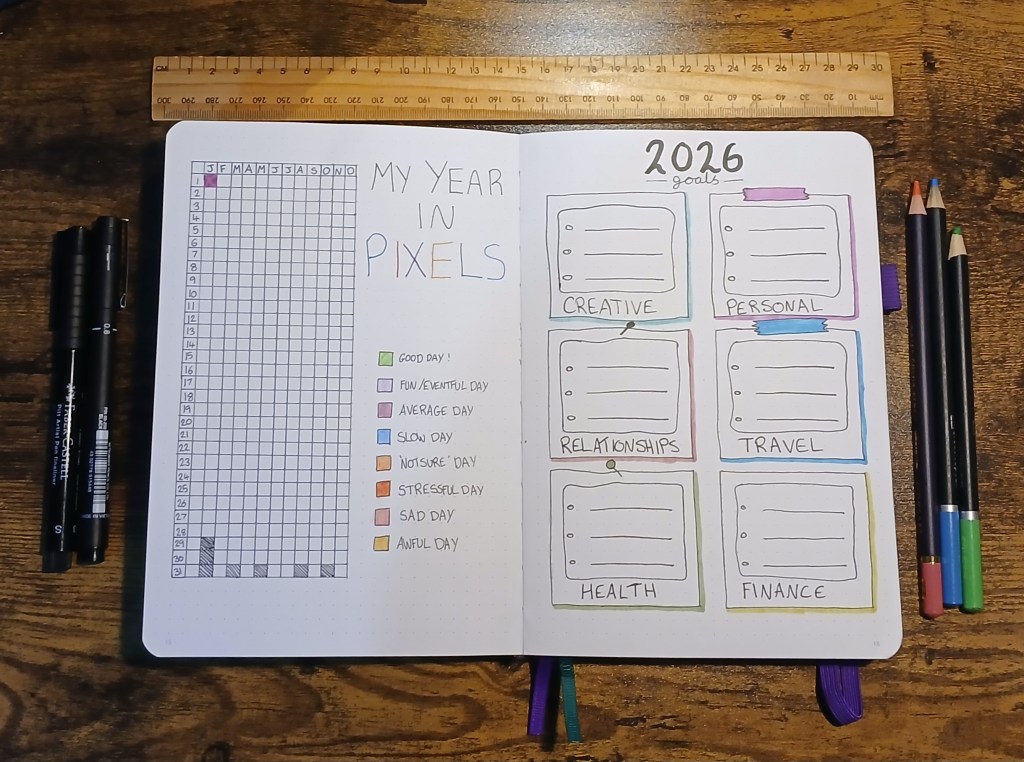 CM 1 2 3 4 5 6 7 8 9 10 11 12 13 14 15 16 17 18 19 20 21 22 23 24 25 26 27 28 29 30
300 290 280 270 260 250 240 230 220 210 200 190 180 170 160 150 140 130 120 110 100 90 80 70 60 50 40 30 20 10 mm
J F M A M J J A S O N D
1
2
3
4
5
6
7
8
9
10
11
12
13
14
15
16
17
18
19
20
21
22
23
24
25
26
27
28
29
30
31
MY YEAR
IN
PIXELS
GOOD DAY !
FUN/EVENTFUL DAY
AVERAGE DAY
SLOW DAY
'NOTSURE' DAY
STRESSFUL DAY
SAD DAY
AWFUL DAY
2026
goals
CREATIVE
PERSONAL
RELATIONSHIPS
TRAVEL
HEALTH
FINANCE
FABER-CASTELL
Pitt Artist Pen fineliner
S
0.8